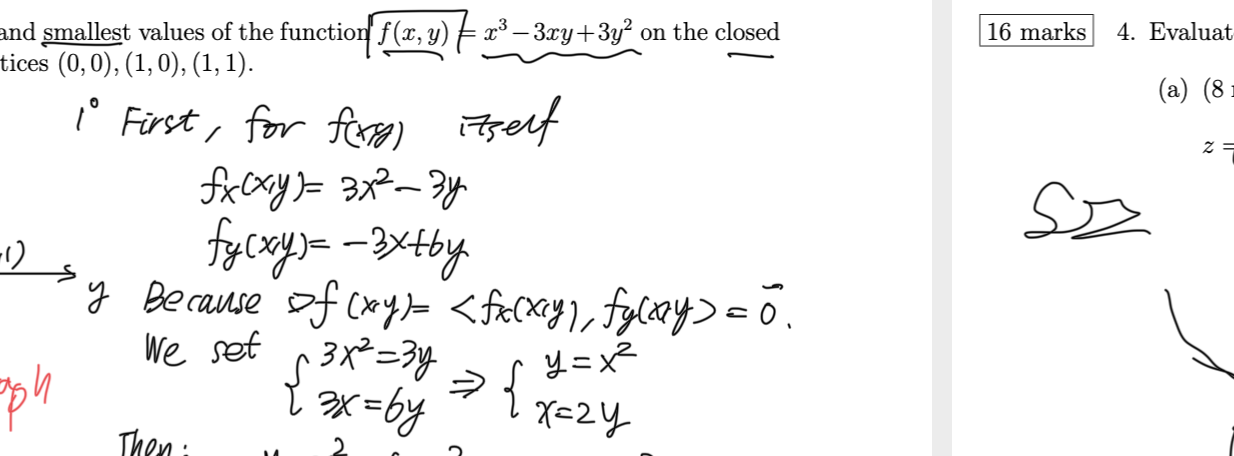 and smallest values of the function f(x, y) = x³ − 3xy + 3y² on the closed
tices (0, 0), (1, 0), (1, 1).
1° First, for f(x,y) itself
fx(x,y) = 3x² − 3y
fy(x,y) = −3x+6y
y
Because ∇f(x,y) = <fx(x,y), fy(x,y)> = 0⃗.
We set { 3x² = 3y ⇒ { y = x²
3x = 6y x = 2y
Then:
16 marks 4. Evaluat
(a) (8
z =